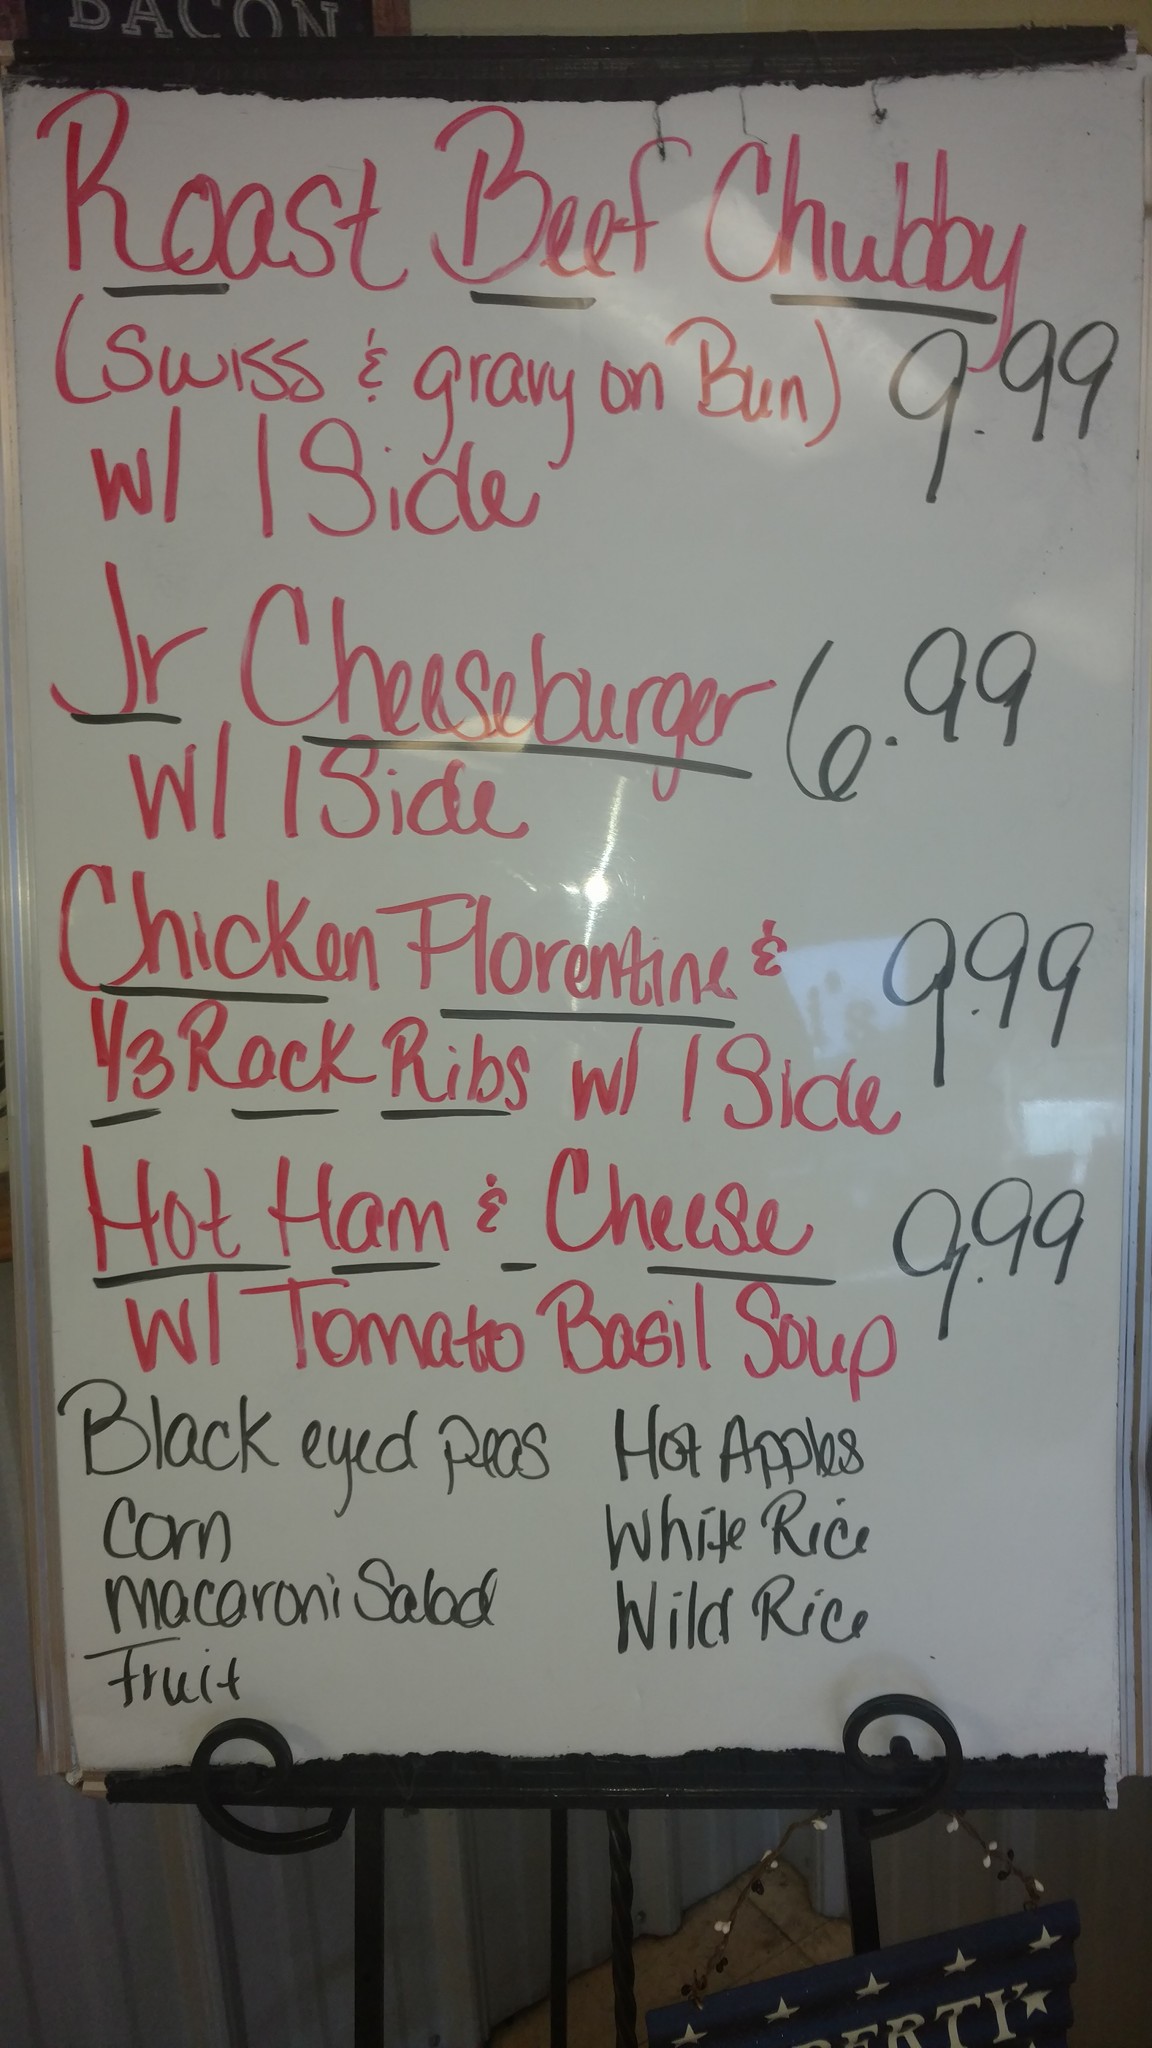 BACON
Roast Beef Chubby
(Swiss & gravy on Bun) 9.99
w/ 1 Side
Jr Cheeseburger 6.99
w/ 1 Side
Chicken Florentine & 9.99
1/3 Rack Ribs w/ 1 Side
Hot Ham & Cheese 9.99
w/ Tomato Basil Soup
Black eyed peas Hot Apples
Corn White Rice
Macaroni Salad Wild Rice
Fruit